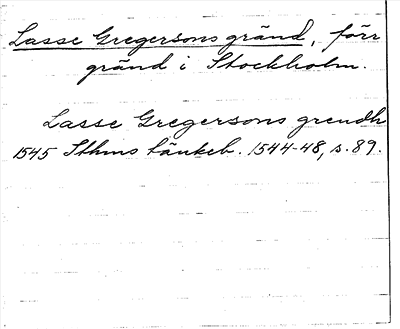 Lasse Gregersons gränd, förr
gränd i Stockholm.
Lasse Gregersons grendh
1545 Sthms tänkeb. 1544-48, s. 89.